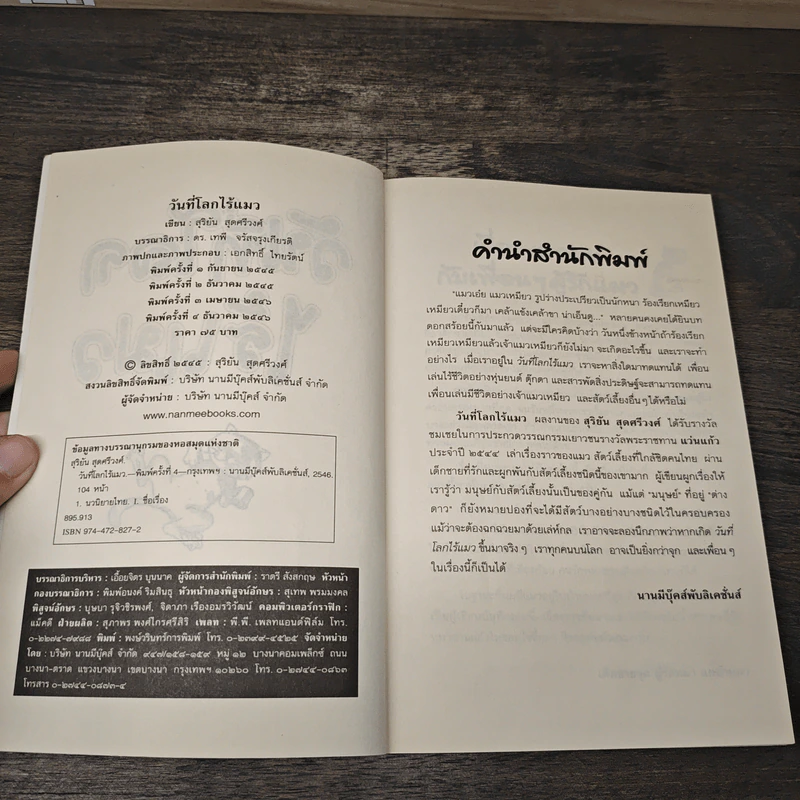 วันที่โลกไร้แมว
เขียน : สุริยัน สุดศรีวงศ์
บรรณาธิการ : ดร. เทพี จรัสจรุงเกียรติ
ภาพปกและภาพประกอบ : เอกสิทธิ์ ไทยรัตน์
พิมพ์ครั้งที่ ๑ กันยายน ๒๕๔๕
พิมพ์ครั้งที่ ๒ ธันวาคม ๒๕๔๕
พิมพ์ครั้งที่ ๓ เมษายน ๒๕๔๖
พิมพ์ครั้งที่ ๔ ธันวาคม ๒๕๔๖
ราคา ๗๕ บาท
© ลิขสิทธิ์ ๒๕๔๕ : สุริยัน สุดศรีวงศ์
สงวนลิขสิทธิ์จัดพิมพ์ : บริษัท นานมีบุ๊คส์พับลิเคชั่นส์ จำกัด
ผู้จัดจำหน่าย : บริษัท นานมีบุ๊คส์ จำกัด
www.nanmeebooks.com
ข้อมูลทางบรรณานุกรมของหอสมุดแห่งชาติ
สุริยัน สุดศรีวงศ์.
วันที่โลกไร้แมว.—พิมพ์ครั้งที่ 4—กรุงเทพฯ : นานมีบุ๊คส์พับลิเคชั่นส์, 2546.
104 หน้า
1. นวนิยายไทย. I. ชื่อเรื่อง
895.913
ISBN 974-472-827-2
บรรณาธิการบริหาร : เอื้อยจิตร บุนนาค ผู้จัดการสำนักพิมพ์ : ราตรี สังสกฤษ หัวหน้า
กองบรรณาธิการ : พิมพ์อนงค์ ริมสินธุ หัวหน้ากองพิสูจน์อักษร : สุเทพ พรมมงคล
พิสูจน์อักษร : บุษบา รุจิวชิรพงศ์, จิดาภา เรืองอมรวิวัฒน์ คอมพิวเตอร์กราฟิก :
แม็คดี ฝ่ายผลิต : สุภาพร พงศ์ไกรศรีสิริ เพลท : พี.พี. เพลทแอนด์ฟิล์ม โทร.
๐-๒๒๗๔-๗๙๘๘ พิมพ์ : พงษ์วรินทร์การพิมพ์ โทร. ๐-๒๓๙๙-๔๕๒๕ จัดจำหน่าย
โดย : บริษัท นานมีบุ๊คส์ จำกัด ๙๔๗/๑๕๘-๑๕๙ หมู่ ๑๒ บางนาคอมเพล็กซ์ ถนน
บางนา-ตราด แขวงบางนา เขตบางนา กรุงเทพฯ ๑๐๒๖๐ โทร. ๐-๒๗๔๔-๐๘๖๓
โทรสาร ๐-๒๗๔๔-๐๘๗๓-๔
คำนำสำนักพิมพ์
"แมวเอ๋ย แมวเหมียว รูปร่างประเปรียวเป็นนักหนา ร้องเรียกเหมียว
เหมียวเดี๋ยวก็มา เคล้าแข้งเคล้าขา น่าเอ็นดู..." หลายคนคงเคยได้ยินบท
ดอกสร้อยนี้กันมาแล้ว แต่จะมีใครคิดบ้างว่า วันหนึ่งข้างหน้าถ้าร้องเรียก
เหมียวเหมียวแล้วเจ้าแมวเหมียวก็ยังไม่มา จะเกิดอะไรขึ้น และเราจะทำ
อย่างไร เมื่อเราอยู่ใน วันที่โลกไร้แมว เราจะหาสิ่งใดมาทดแทนได้ เพื่อน
เล่นไร้ชีวิตอย่างหุ่นยนต์ ตุ๊กตา และสารพัดสิ่งประดิษฐ์จะสามารถทดแทน
เพื่อนเล่นมีชีวิตอย่างเจ้าแมวเหมียว และสัตว์เลี้ยงอื่นๆ ได้หรือไม่
วันที่โลกไร้แมว ผลงานของ สุริยัน สุดศรีวงศ์ ได้รับรางวัล
ชมเชยในการประกวดวรรณกรรมเยาวชนรางวัลพระราชทาน แว่นแก้ว
ประจำปี ๒๕๔๔ เล่าเรื่องราวของแมว สัตว์เลี้ยงที่ใกล้ชิดคนไทย ผ่าน
เด็กชายที่รักและผูกพันกับสัตว์เลี้ยงชนิดนี้ของเขามาก ผู้เขียนผูกเรื่องให้
เรารู้ว่า มนุษย์กับสัตว์เลี้ยงนั้นเป็นของคู่กัน แม้แต่ "มนุษย์" ที่อยู่ "ต่าง
ดาว" ก็ยังหมายปองที่จะได้มีสัตว์บางอย่างบางชนิดไว้ในครอบครอง
แม้ว่าจะต้องฉกฉวยมาด้วยเล่ห์กล เราอาจจะลองนึกภาพว่าหากเกิด วันที่
โลกไร้แมว ขึ้นมาจริงๆ เราทุกคนบนโลก อาจเป็นยิ่งกว่าจุก และเพื่อนๆ
ในเรื่องนี้ก็เป็นได้
นานมีบุ๊คส์พับลิเคชั่นส์